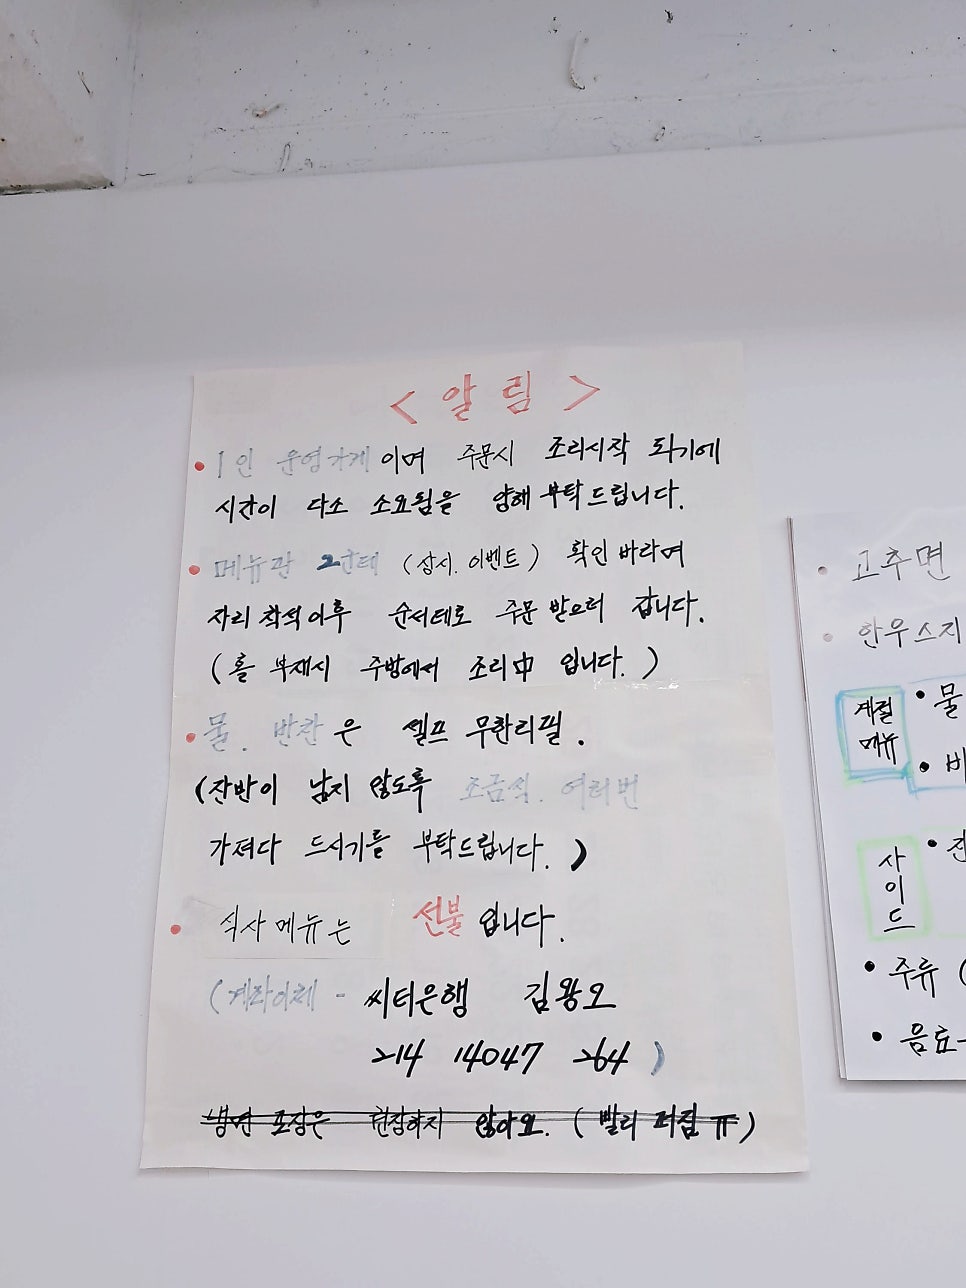 < 알 림 >
• 1인 운영가게 이며 주문시 조리시작 되기에
시간이 다소 소요됨을 양해 부탁드립니다.
• 메뉴판 2군데 (상시. 이벤트) 확인 바라며
자리 착석 이후 순서대로 주문 받으러 갑니다.
(홀 부재시 주방에서 조리中 입니다.)
• 물. 반찬은 셀프 무한리필.
(잔반이 남지 않도록 조금씩. 여러번
가져다 드시기를 부탁드립니다.)
• 식사 메뉴는 선불 입니다.
(계좌이체 - 씨티은행 김왕오
214 14047 264)
포장은 권장하지 않아요. (빨리 퍼짐 ㅠ)
• 고추면
• 한우스지
계절
메뉴
• 물
• 비
사
이
드
• 주류 (
• 음료